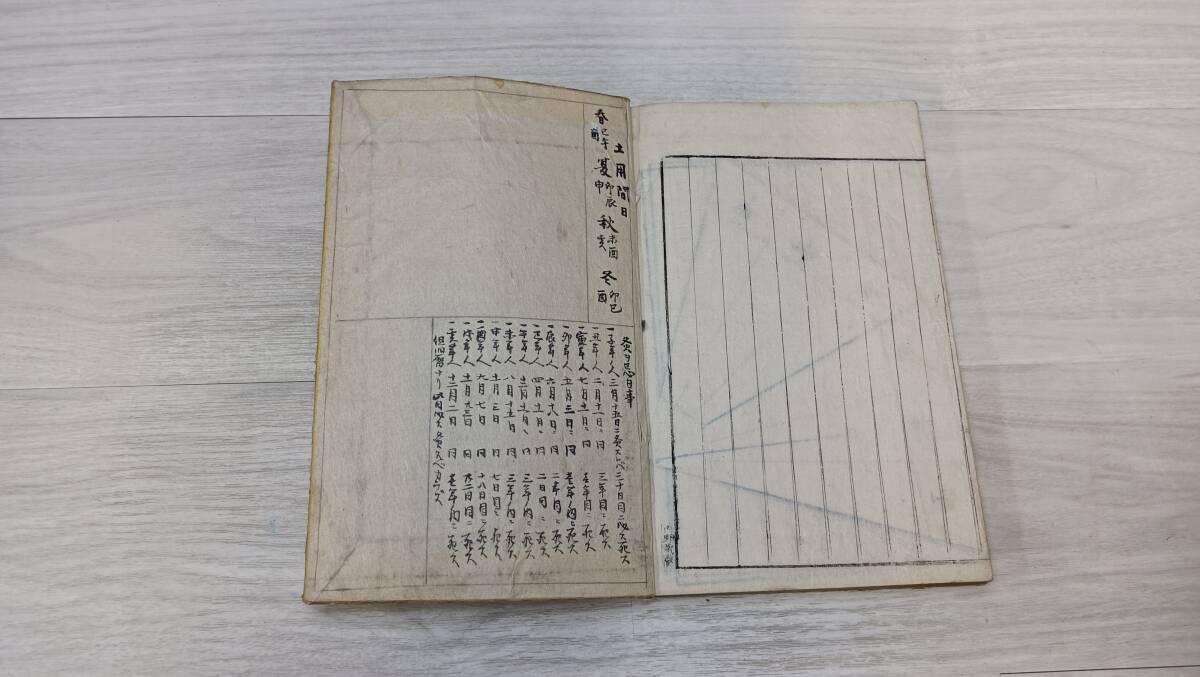 土用間日
春 巳午酉 夏 卯辰申 秋 未酉亥 冬 卯巳酉
灸ヲ忌日事
一子年ノ人 三月十五日ニ灸スレバ二十日目ニ必ス死ス
一丑年人 二月十一日ニ同 三年目ニ死ス
一寅年人 七月十一日ニ同 壱年目ニ死ス
一卯年人 五月三日ニ同 壱年ノ内ニ死ス
一辰年人 六月十八日ニ同 二年内ニ死ス
一巳年人 四月十一日ニ同 二日目ニ死ス
一午年人 十二月十一日ニ同 三年ノ内ニ死ス
一未年人 八月十五日同 三年ノ内ニ死ス
一申年人 十一月三日同 七日目ニ死ス
一酉年人 九月七日同 十八日目ニ死ス
一戌年人 十一月 同 死ス
一亥年人 十二月二日同 壱年ノ内ニ死ス
但旧暦ナリ 此日必ス灸スベカラズ